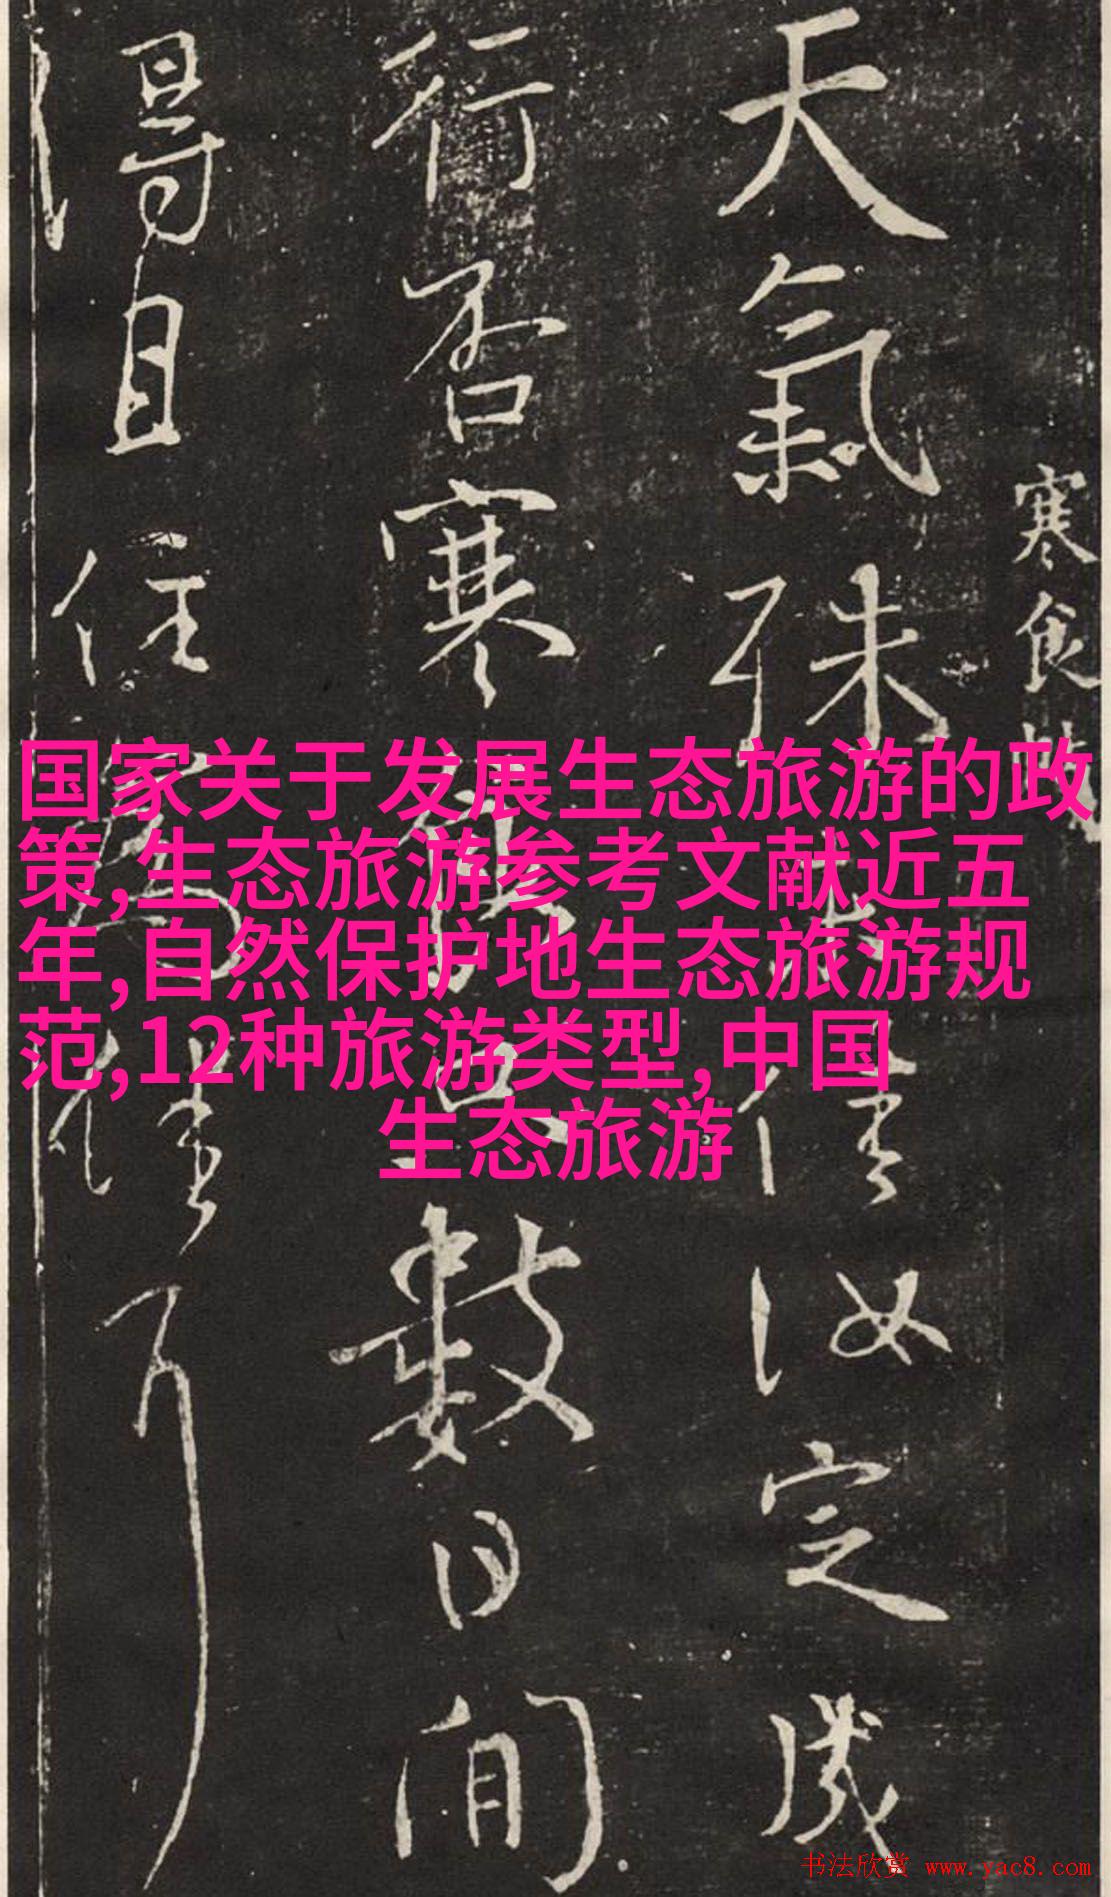 寒食帖
天氣殊未佳汝定成
行否寒食只數日間
得且住為佳耳
国家关于发展生态旅游的政
策,生态旅游参考文献近五
年,自然保护地生态旅游规
范,12种旅游类型,中国
生态旅游
书法欣赏 www.yac8.com